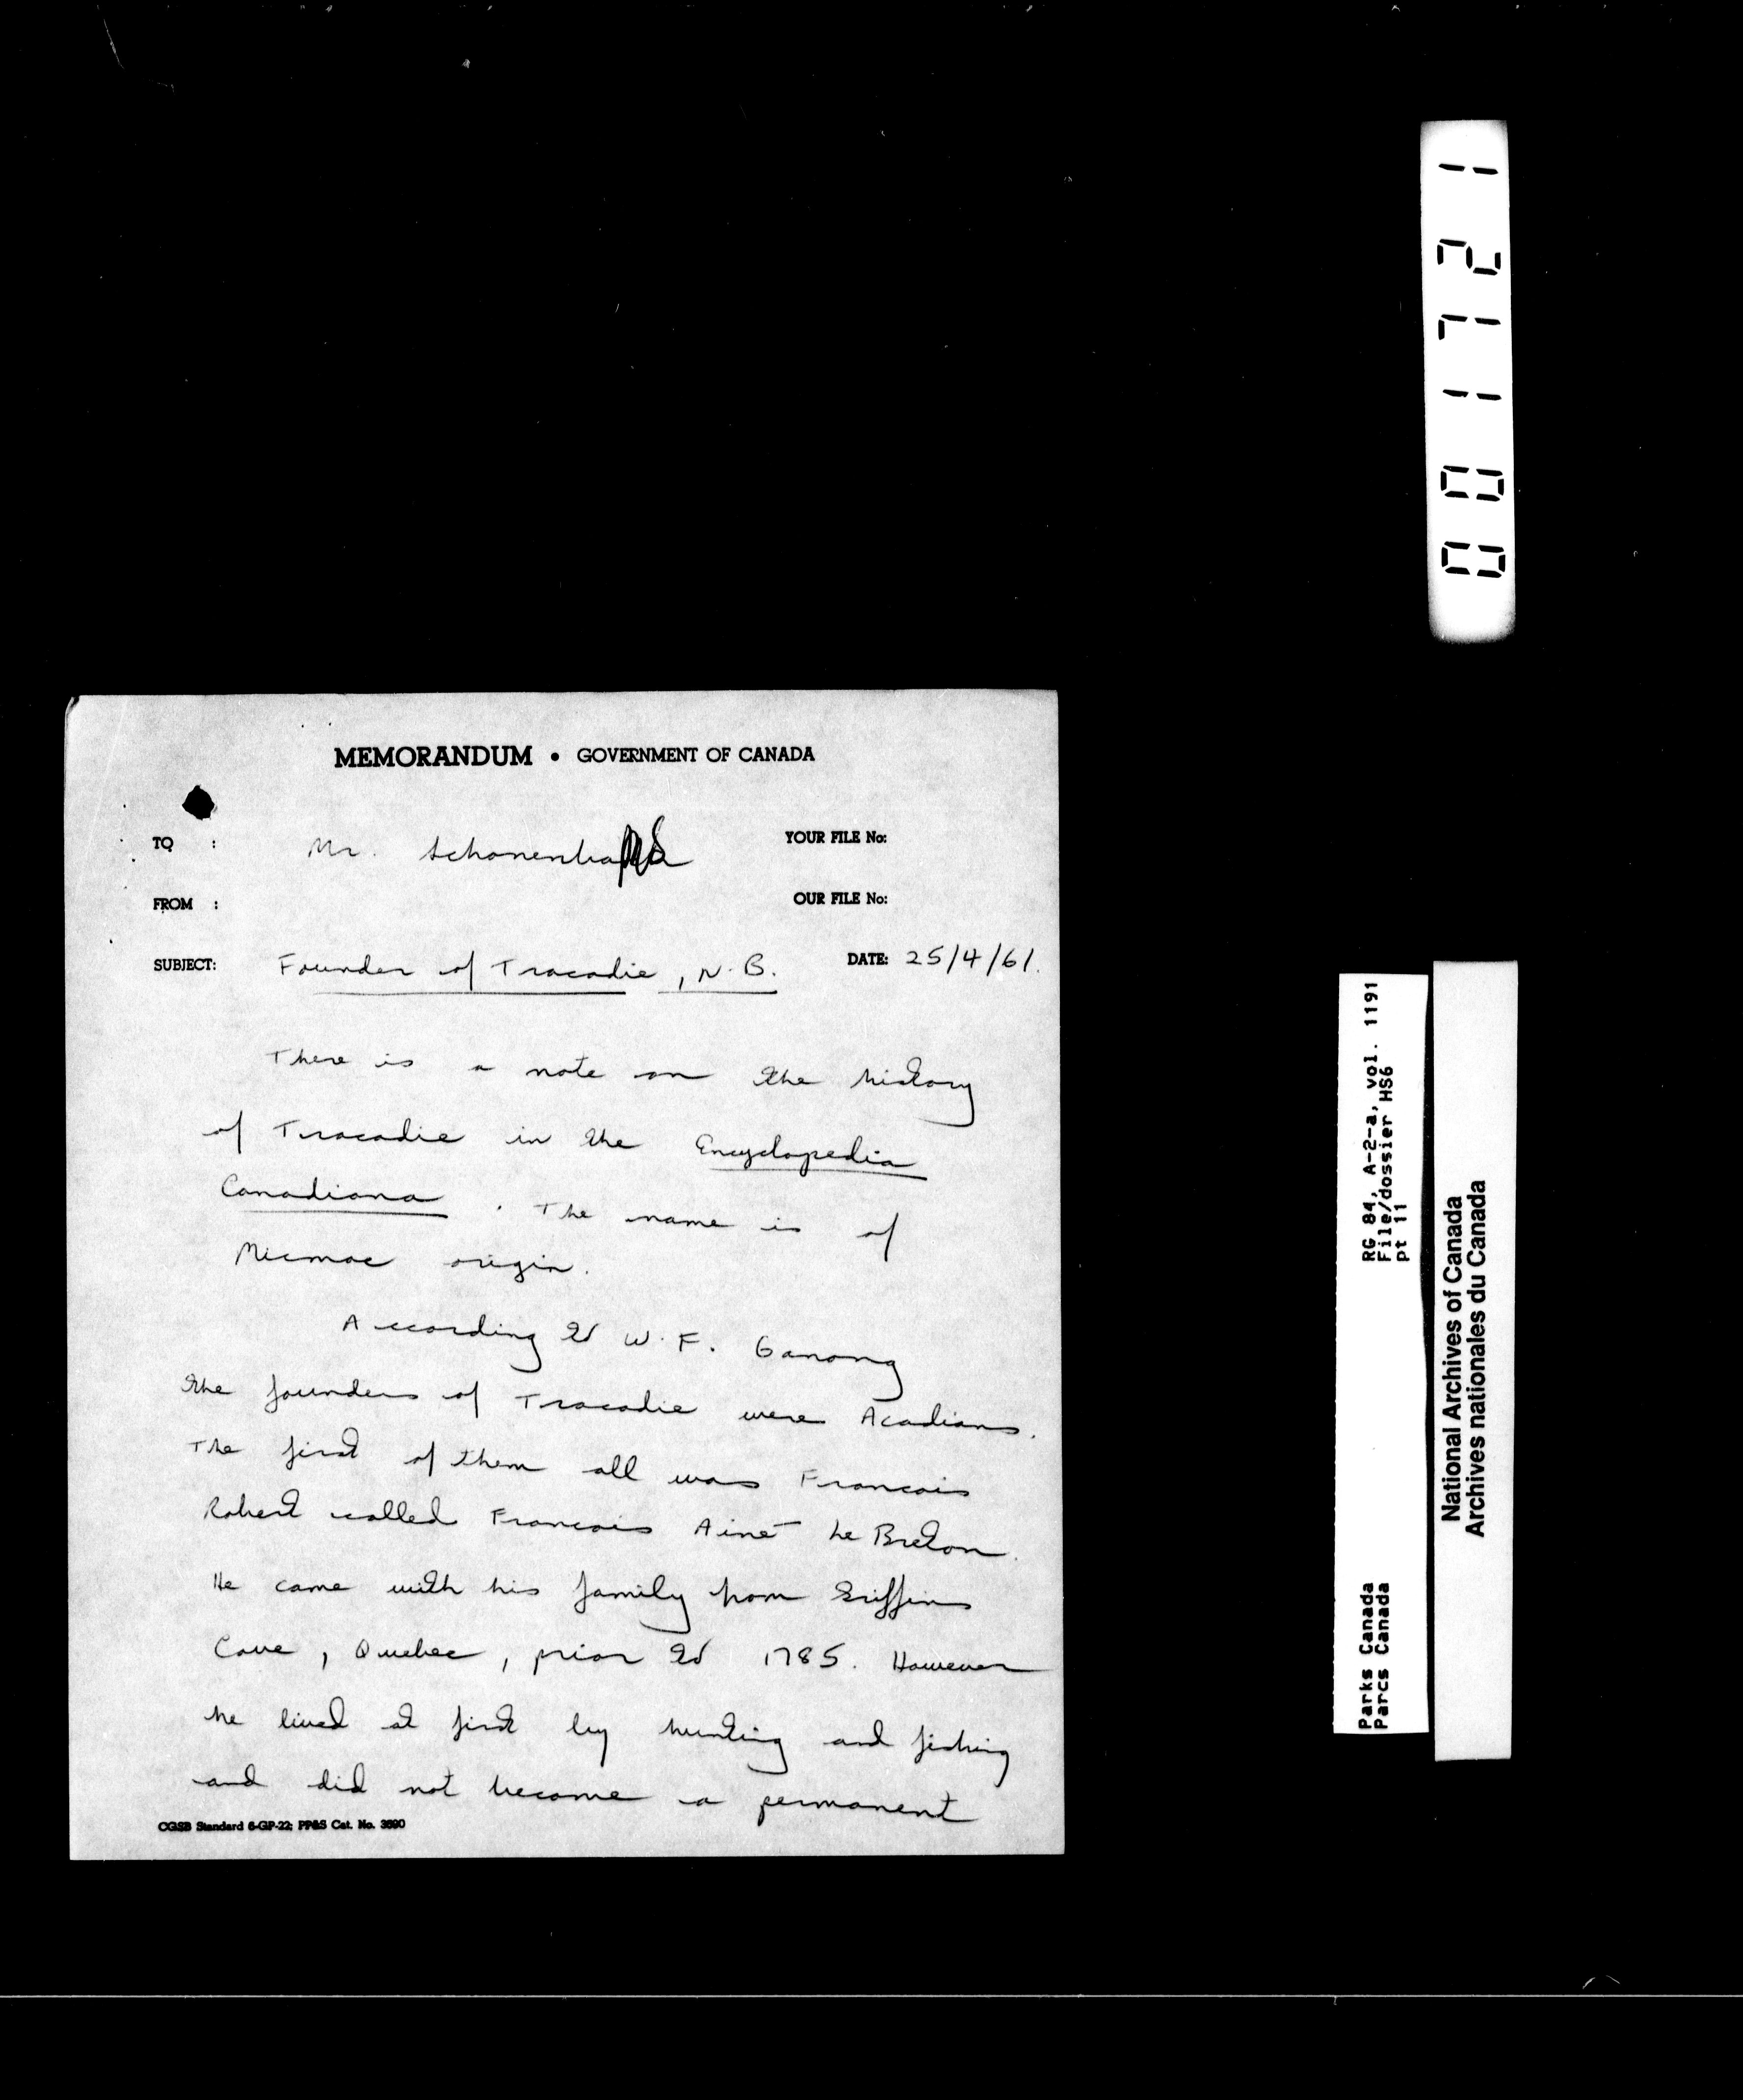 MEMORANDUM • GOVERNMENT OF CANADA
TO : Mr.
YOUR FILE No:
FROM :
OUR FILE No:
SUBJECT: Founder of Tracadie, N.B.
DATE: 25/4/61.
There is a note on the history
of Tracadie in the Encyclopedia
Canadiana. The name is of
Micmac origin.
According to W.F. Ganong
the founders of Tracadie were Acadians.
The first of them all was Francois
Robert called Francois Ainé Le Breton.
He came with his family from Griffins
Cove, Quebec, prior to 1785. However
he lived at first by hunting and fishing
and did not become a permanent
CGSB Standard 6-GP-22; PP&S Cat. No. 3690
001721
Parks Canada
Parcs Canada
RG 84, A-2-a, vol. 1191
File/dossier HS6
pt 11
National Archives of Canada
Archives nationales du Canada